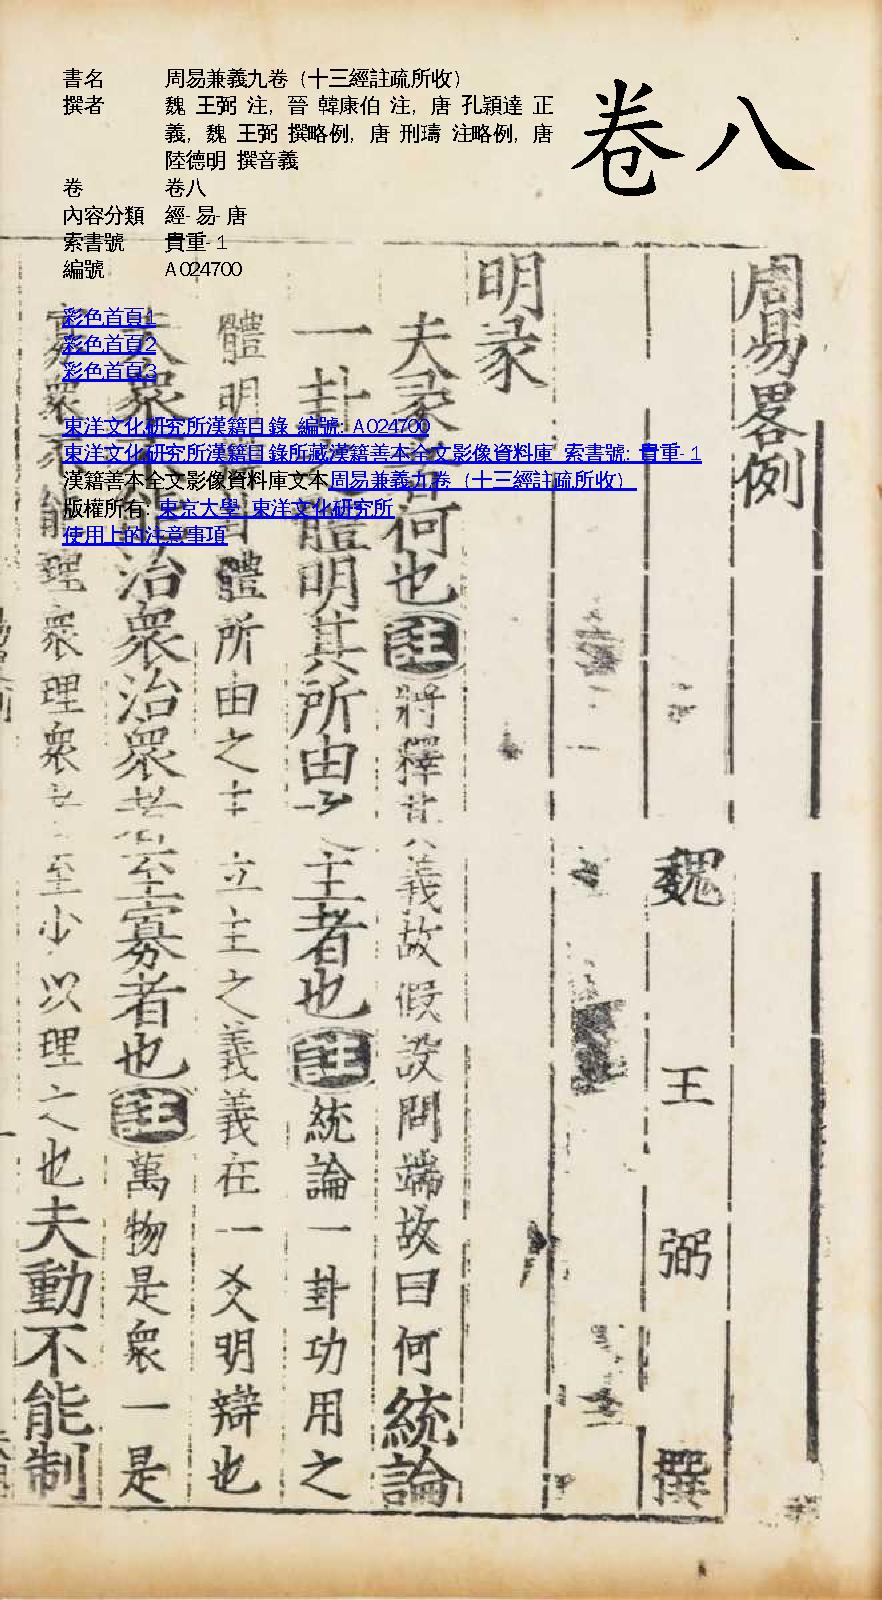 書名 周易兼義九卷 (十三經註疏所收)
撰者 魏 王弼 注, 晉 韓康伯 注, 唐 孔穎達 正
義, 魏 王弼 撰略例, 唐 刑璹 注略例, 唐
陸德明 撰音義
卷 卷八
內容分類 經-易-唐
索書號 貴重-1
編號 A024700
卷八
彩色首頁1
彩色首頁2
彩色首頁3
東洋文化研究所漢籍目錄 編號: A024700
東洋文化研究所漢籍目錄所藏漢籍善本全文影像資料庫 索書號: 貴重-1
漢籍善本全文影像資料庫文本周易兼義九卷 (十三經註疏所收)
版權所有: 東京大學 東洋文化研究所
使用上的注意事項
周易畧例
魏 王 弼 撰
明彖
夫彖者何也註將釋其義故假設問端故曰何統論
一卦之體明其所由之主者也註統論一卦功用之
體明辯卦體所由之主立主之義義在一爻明辯也
夫衆不能治衆治衆者至寡者也註萬物是衆一是
寡衆不能理衆理衆者至少以理之也夫動不能制